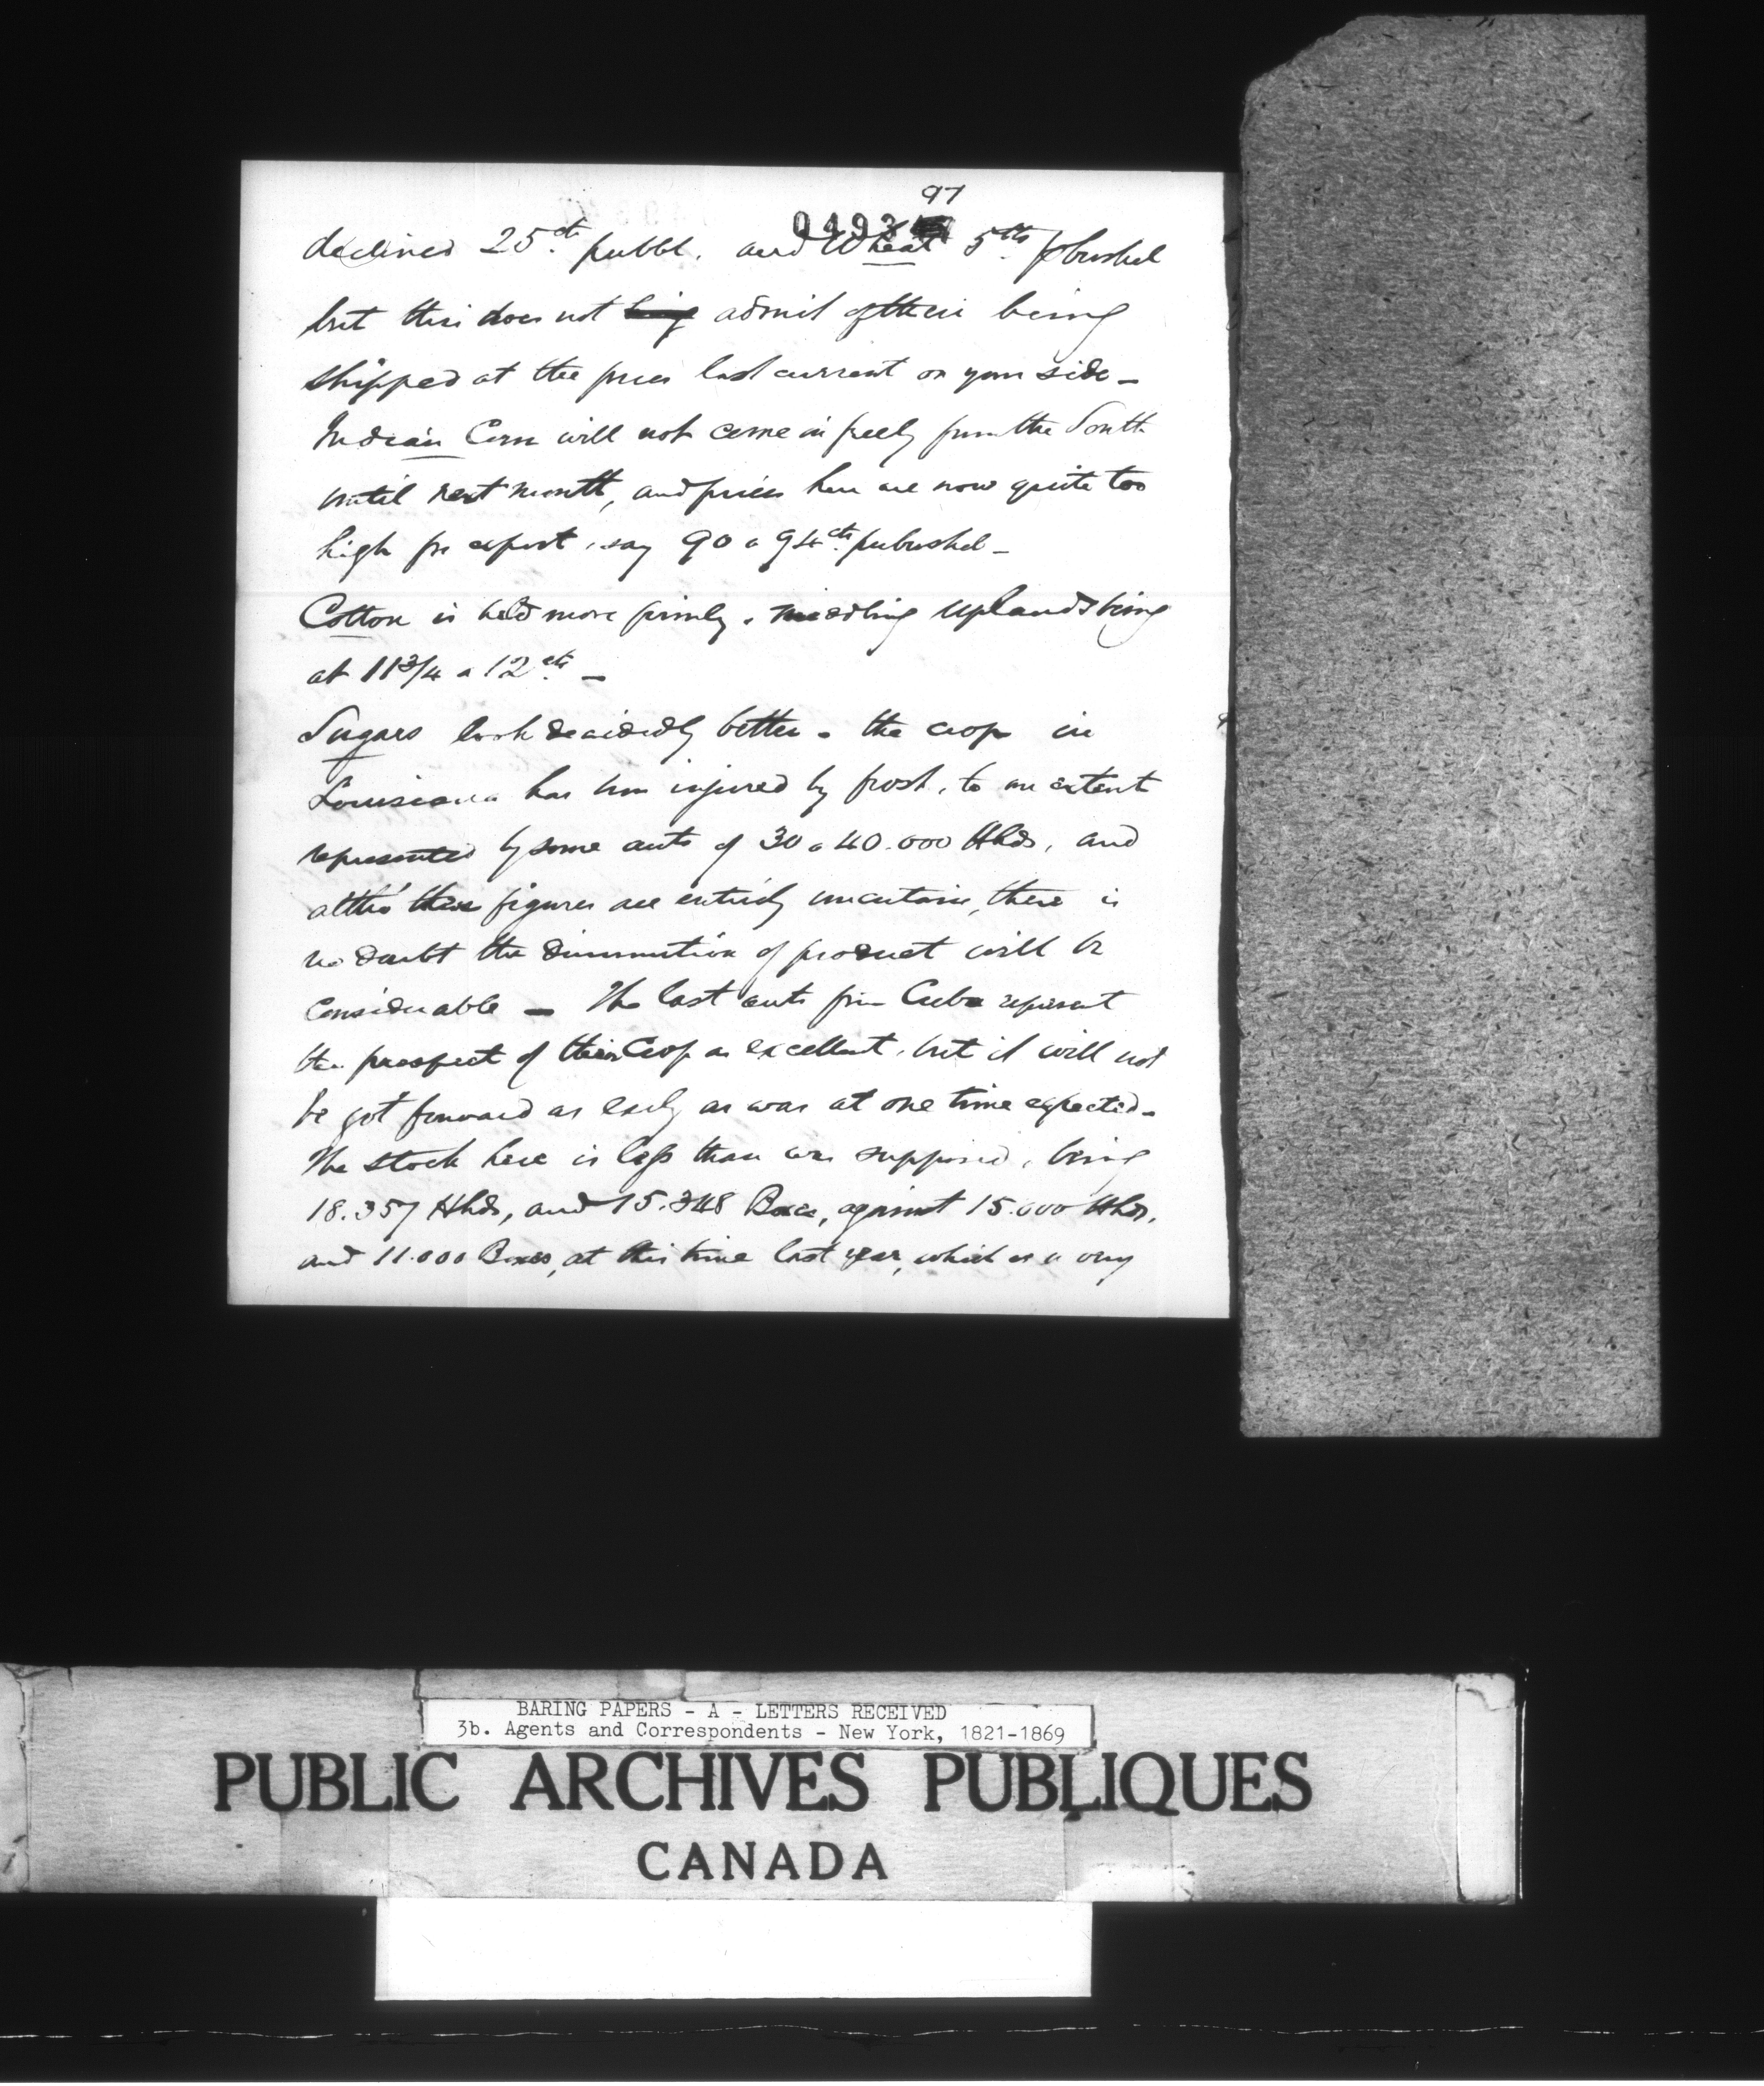 97
0493
declined 25cts pr bbl. and Wheat 5cts p bushel
but this does not being admit of their being
shipped at the prices last current on your side –
Indian Corn will not come in freely from the South
until next month, and prices here are now quite too
high for export, say 90 a 94cts per bushel –
Cotton is held more firmly, middling Uplands being
at 11 3/4 a 12cts –
Sugars look decidedly better – the crop in
Louisiana has been injured by frost, to an extent
represented by some accts of 30 a 40.000 Hhds, and
altho' these figures are entirely uncertain, there is
no doubt the diminution of product will be
considerable – The last accts from Cuba represent
the prospect of their Crop as excellent, but it will not
be got forward as early as was at one time expected –
The stock here is less than was supposed, being
18.357 Hhds, and 15.348 Boxes, against 15.000 Hhds,
and 11.000 Boxes, at this time last year, which is a very
BARING PAPERS - A - LETTERS RECEIVED
3b. Agents and Correspondents - New York, 1821-1869
PUBLIC ARCHIVES PUBLIQUES
CANADA